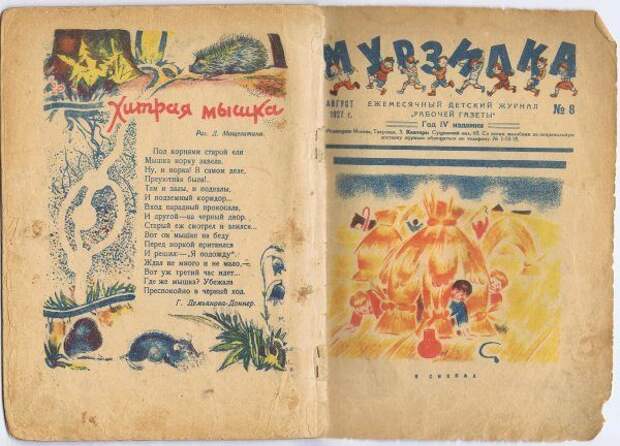 Хитрая мышка
Рис. Д. Мощевитина.
Под корнями старой ели
Мышка норку завела.
Ну, и норка! В самом деле,
Преуютная была!..
Там и залы, и подвалы,
И подземный коридор...
Вход парадный прокопала,
И другой—на черный двор.
Старый еж смотрел и злился...
Вот он мышке на беду
Перед норкой притаился
И решил:—„Я подожду".
Ждал не много и не мало,—
Вот уж третий час идет...
Где же мышка? Убежала
Преспокойно в черный ход.
Г. Демьянова-Доннер.
МУРЗИЛКА
АВГУСТ
1927 г.
ЕЖЕМЕСЯЧНЫЙ ДЕТСКИЙ ЖУРНАЛ
„РАБОЧЕЙ ГАЗЕТЫ"
№ 8
Год IV издания
Москва, Тверская, 3. Контора:
В СНОПАХ